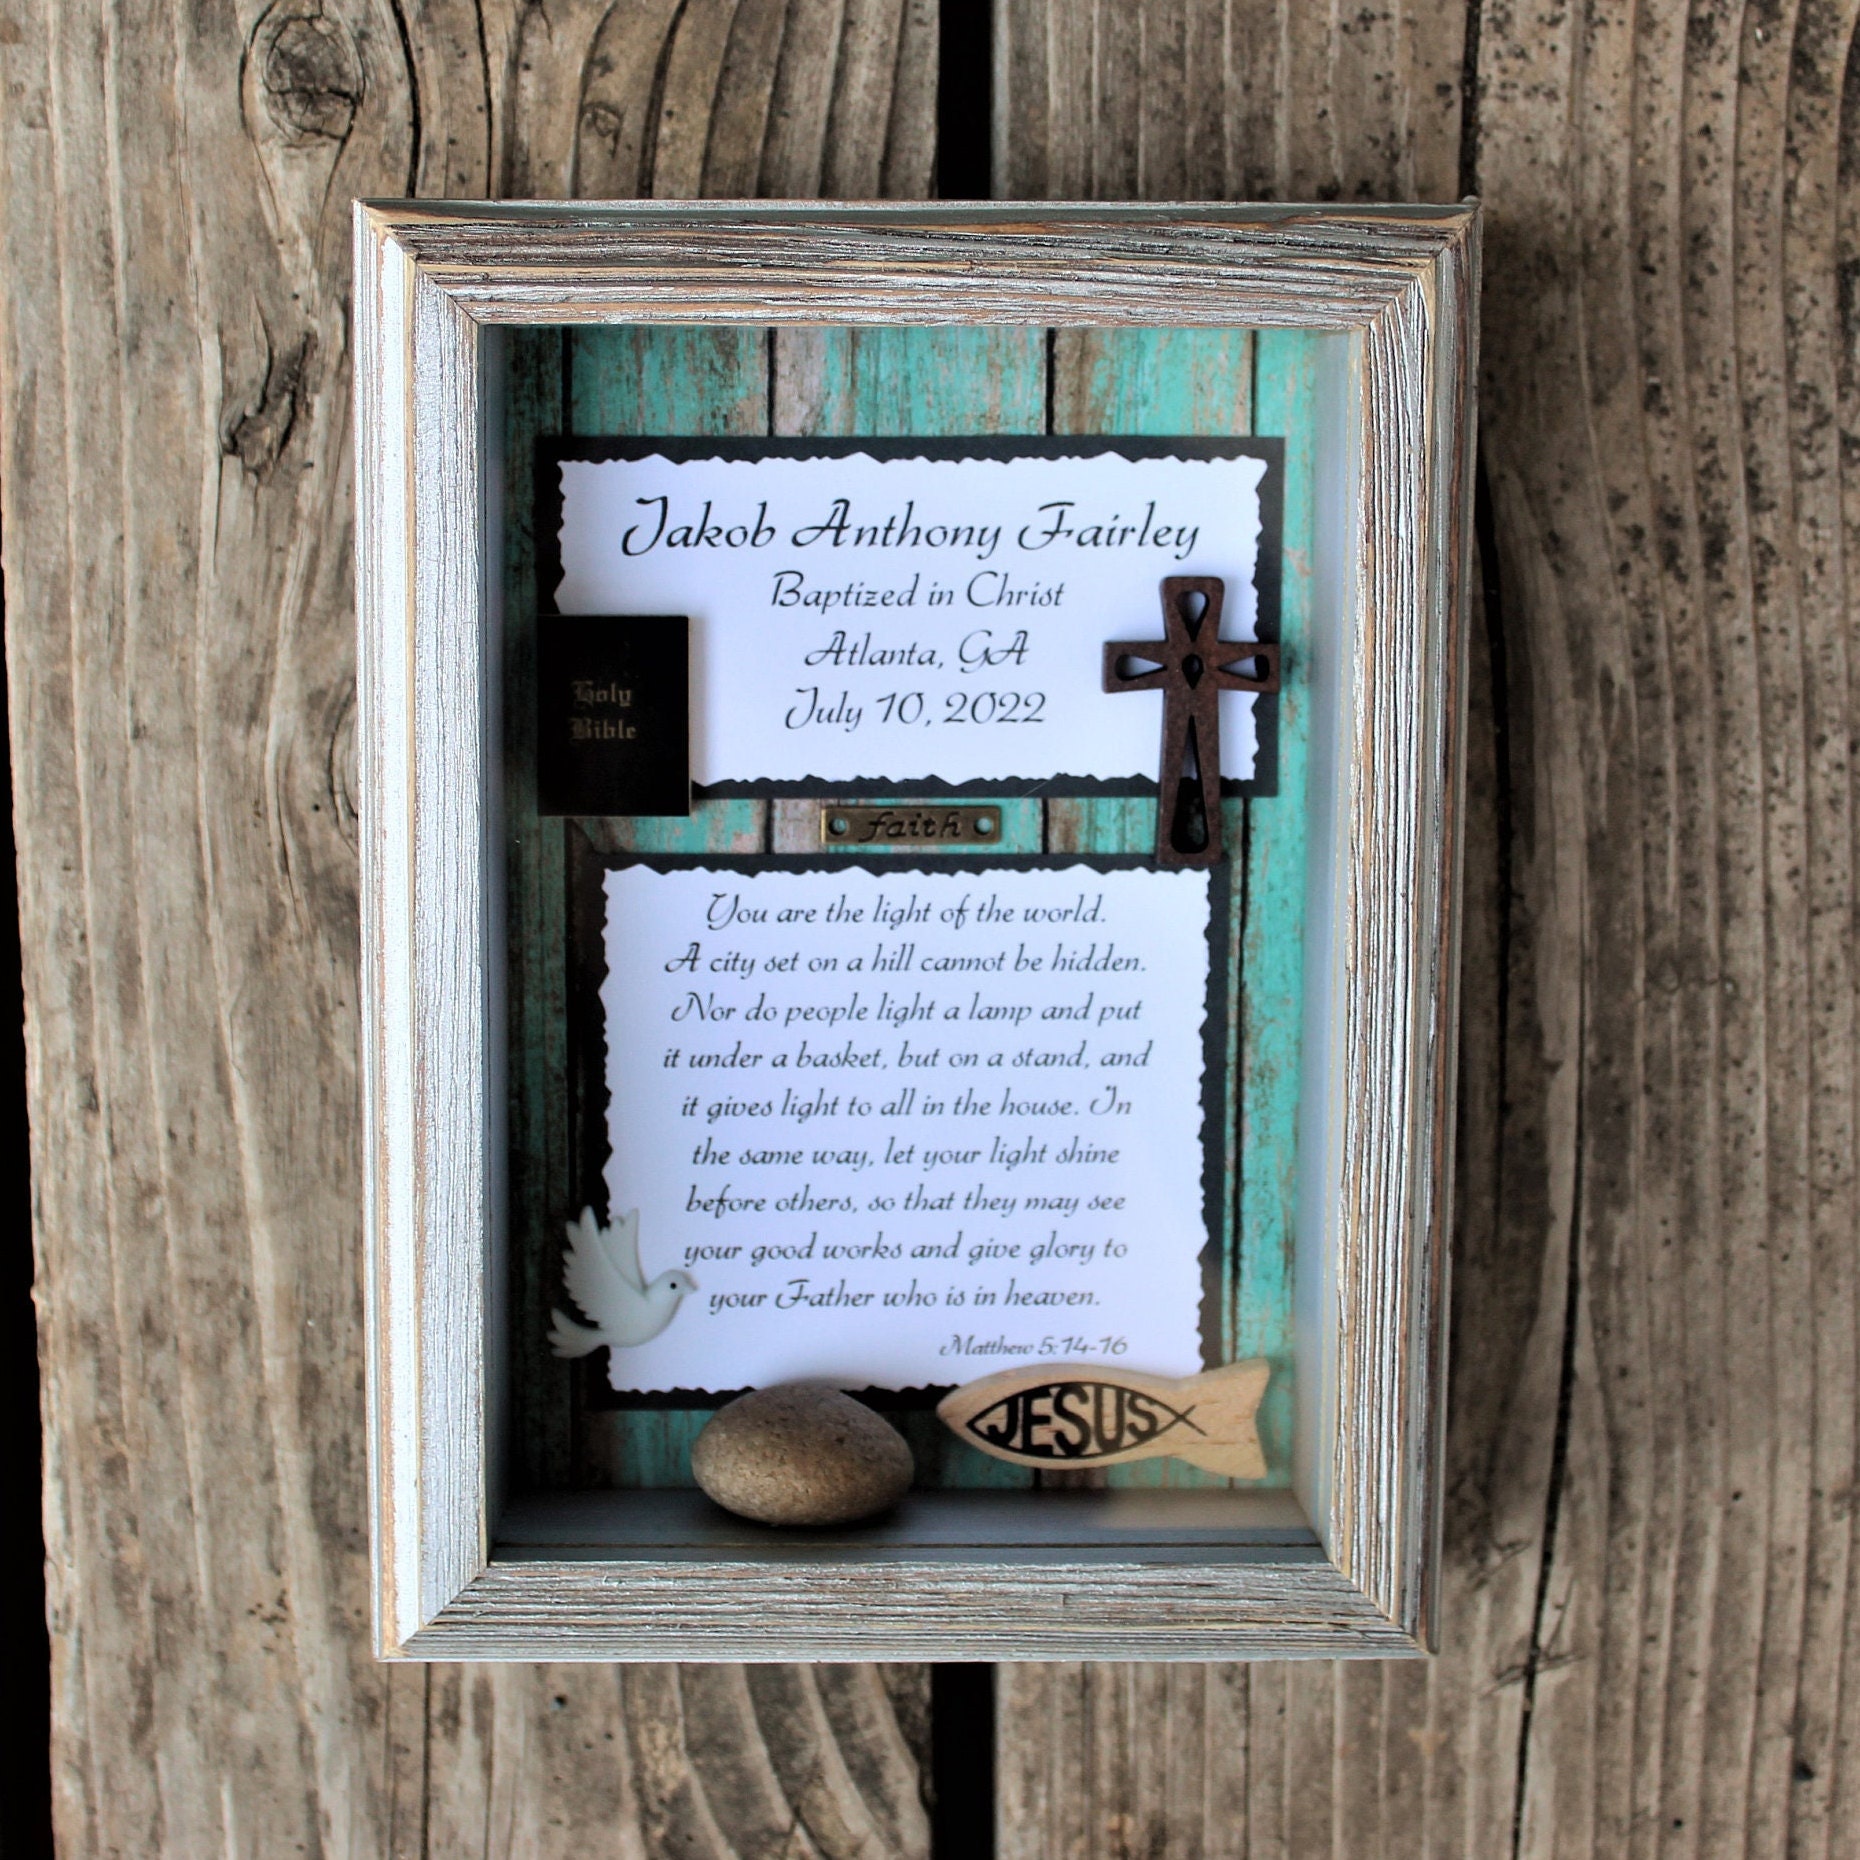 Jakob Anthony Fairley
Baptized in Christ
Atlanta, GA
July 10, 2022
Holy
Bible
faith
You are the light of the world.
A city set on a hill cannot be hidden.
Nor do people light a lamp and put
it under a basket, but on a stand, and
it gives light to all in the house. In
the same way, let your light shine
before others, so that they may see
your good works and give glory to
your Father who is in heaven.
Matthew 5:14-16
JESUS